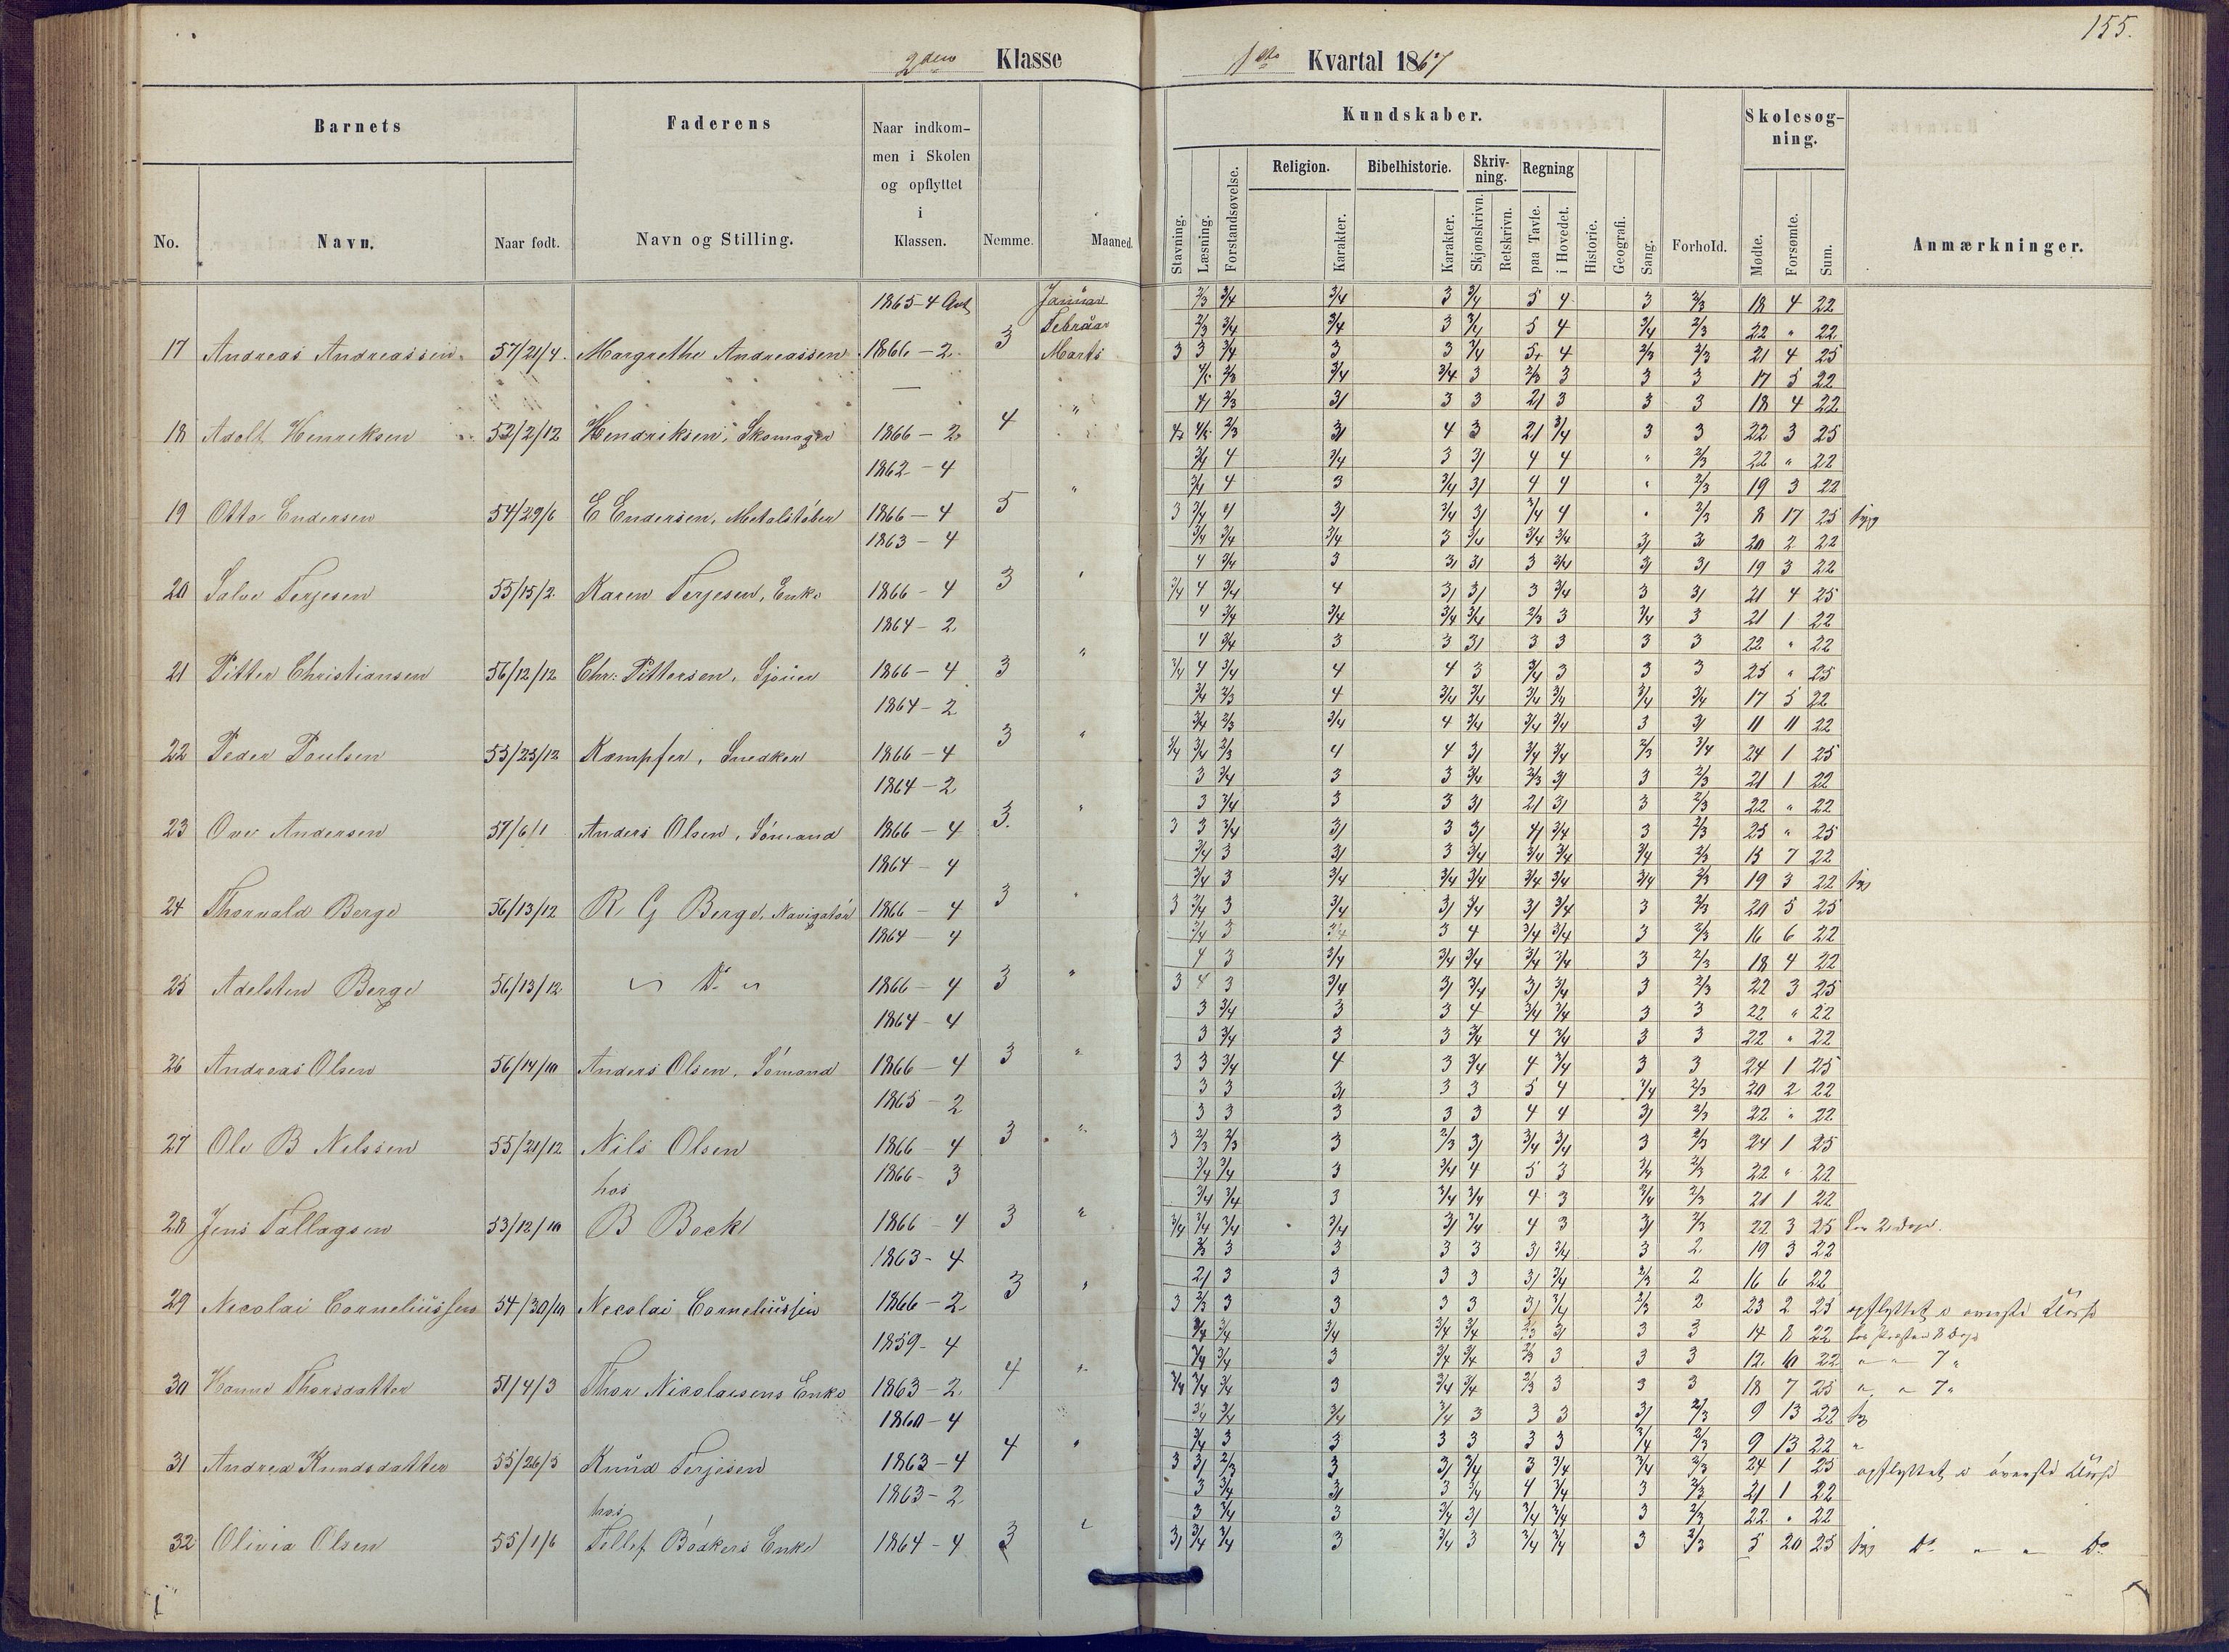 155.
2den Klasse
1ste Kvartal 1867
Barnets
Faderens
Naar indkom-
men i Skolen
og opflyttet
i
Klassen.
No.
Navn.
Naar født.
Navn og Stilling.
Nemme.
Maaned.
Kundskaber.
Skolesøg-
ning.
Religion.
Bibelhistorie.
Skriv-
ning.
Regning
Stavning.
Læsning.
Forstandsøvelse.
Karakter.
Karakter.
Skjønskrivn.
Retskrivn.
paa Tavle.
i Hovedet.
Historie.
Geografi.
Sang.
Forhold.
Mødte.
Forsømte.
Sum.
Anmærkninger.
1865-4 Januar 2/3 3/4 3/4 3 3/4 5 4 3 2/3 18 4 22
Februar 2/3 3/4 3/4 3 3/4 5 4 3/4 2/3 22 " 22
17 Andreas Andreassen 57/21/4 Margrethe Andreassen 1866-2 3 Marts 3 3 3/4 3 3 3/4 5 4 2/3 2/3 21 4 25
2/3 3/4 3/4 3 2/3 3 3 3 17 5 22
2/3 3/ 3 3 2/ 3 3 3 18 4 22
18 Adolf Henriksen 52/2/12 Hendriksen, Skomager 1866-2 4 " 2/3 3/ 4 3 2/ 3/4 3 3 22 3 25
1862-4 3/4 4 3/4 3 3/ 4 4 " 2/3 22 " 22
3/4 4 3 3/4 3/ 4 4 " 2/3 19 3 22
19 Otto Endersen 54/29/6 E Endersen, Metalstøber 1866-4 5 " 3 3/4 4 3/ 3/4 3/ 3/4 4 " 2/3 8 17 25 syg
1863-4 3/4 3/4 3/4 3 3/4 3/4 3/4 3/ 3/ 20 2 22
4 3/4 3 3/ 3/ 3 3/4 3/ 3/ 19 3 22
20 Salve Terjesen 55/15/2 Karen Terjesen, Enke 1866-4 3 " 3/4 4 3/4 4 3/ 3/ 3 3/4 3 3/ 21 4 25
1864-2 4 3/4 3/4 3/4 3/4 2/3 3 3/4 3 21 1 22
4 3/4 3 3 3/ 3 3 3 3 22 " 22
21 Pitter Christiansen 56/12/12 Chr: Pittersen, 1866-4 3 " 3/4 4 3/4 4 4 3 3/4 3 3 3 25 " 25
1864-2 3/4 2/3 4 3/4 3/4 3/4 3/4 3/4 3/4 17 5 22
3/4 2/3 3/4 4 3/4 3/4 3/4 3 3/ 11 11 22
22 Peder Poulsen 53/23/12 Kampfer, Snedker 1866-4 3 " 3/4 3/4 2/3 4 4 3/ 3/4 3/4 2/3 3/4 24 1 25
1864-2 3 3/4 3 3 3/4 2/3 3/ 3 2/3 21 1 22
3 3/4 3 3 3/ 2/ 3/ 3 2/3 22 " 22
23 Ove Andersen 57/6/1 Anders Olsen, Sømand 1866-4 3. " 3 3 3/4 3/ 3 3/ 4/ 3/4 3 2/3 25 " 25
1864-4 3/4 3 3/ 3 3/4 3/4 3/4 3/4 2/3 15 7 22
3/4 3 3/4 3/4 3/4 3/4 3/4 3/4 2/3 19 3 22 syg
24 Thorvald Berge 56/13/12 R G Berge, Navigatör 1866-4 3 " 3 3/4 3 3/4 3/ 3/4 3/ 3/4 3 2/3 20 5 25
1864-4 3/4 3 3/4 3 4 3/4 3/4 3 2/3 16 6 22
4 3 3/4 3/4 3/4 3/4 3/4 3 2/3 18 4 22
25 Adelsten Berge 56/13/12 " Do " 1866-4 3 " 3 4 3 3/4 3/ 3/4 3/ 3/4 3 2/3 22 3 25
1864-4 3 3/4 3 3 4 3/4 3/4 3 3 22 " 22
3 3/4 3 3 3/4 4 3/4 3 3 22 " 22
26 Andreas Olsen 56/14/10 Anders Olsen, Sömand 1866-4 3 " 3 3 3/4 4 3 3/4 4 3/4 3 3 24 1 25
1865-2 3 3 3/ 3 3 5 4 3/4 2/3 20 2 22
3 3 3 3 3 4 4 3/ 2/3 22 " 22
27 Ole B Nelssen 55/21/12 Nils Olsen 1866-4 3 " 3 2/3 2/3 3 2/3 3/ 3/4 3/4 3 2/3 24 1 25
1866-3 3/4 3/4 3 3/4 4 5 3 3/4 2/3 22 " 22
hos 3/4 3/4 3 3/4 3/4 4 3 3/4 2/3 21 1 22
28 Jens Tallagsen 53/12/10 B Bock 1866-4 3 " 3/4 3/4 3/4 3/4 3/ 3/4 4 3 3/ 2/3 22 3 25
1863-4 2/3 3 3 3 3 3/ 3/4 3 2 19 3 22
2/ 3 3 3 3 3/ 3/4 2/3 2 16 6 22
29 Necolai Corneliussen 54/30/10 Necolai Corneliussen 1866-2 3 " 3 2/3 3 3 3 3 3/ 3/4 2/3 2 23 2 25 opflyttet i øverste Klasse
1859-4 3/4 3/4 3/4 3/4 3/4 2/3 3/ 3 3 14 8 22
3/4 3/4 3 3/4 3/4 2/3 3 3 3 12 10 22 " " 7 "
30 Hanne Thorsdatter 51/4/3 Thor Nicolaisens Enke 1863-2 4 " 3/4 3/4 3/4 3 3/4 3/4 2/3 3 3 3 18 7 25 " " 7 "
1860-4 3/4 3/4 3/4 3/4 3 3 3 3/ 2/3 9 13 22
3/4 3 3 3 3 3 3 3/4 2/3 9 13 22 "
31 Andrea Knudsdatter 55/26/5 Knud Terjesen 1863-4 4 " 3 3/ 2/3 3 3/ 3/4 3 3/4 3/4 2/3 24 1 25 opflyttet i øverste Klasse
1863-2 3 3/4 3/ 3 3/4 4 3/4 3 2/3 21 1 22
hos 3 3/4 3 3/4 3/ 3/4 3/4 3 2/3 22 " 22
32 Olivia Olsen 55/1/6 Tellef Bödkers Enke 1864-4 3 " 3/ 3/4 3/4 3 3/4 3 3/4 3/4 3 2/3 5 20 25 syg Do " " Do